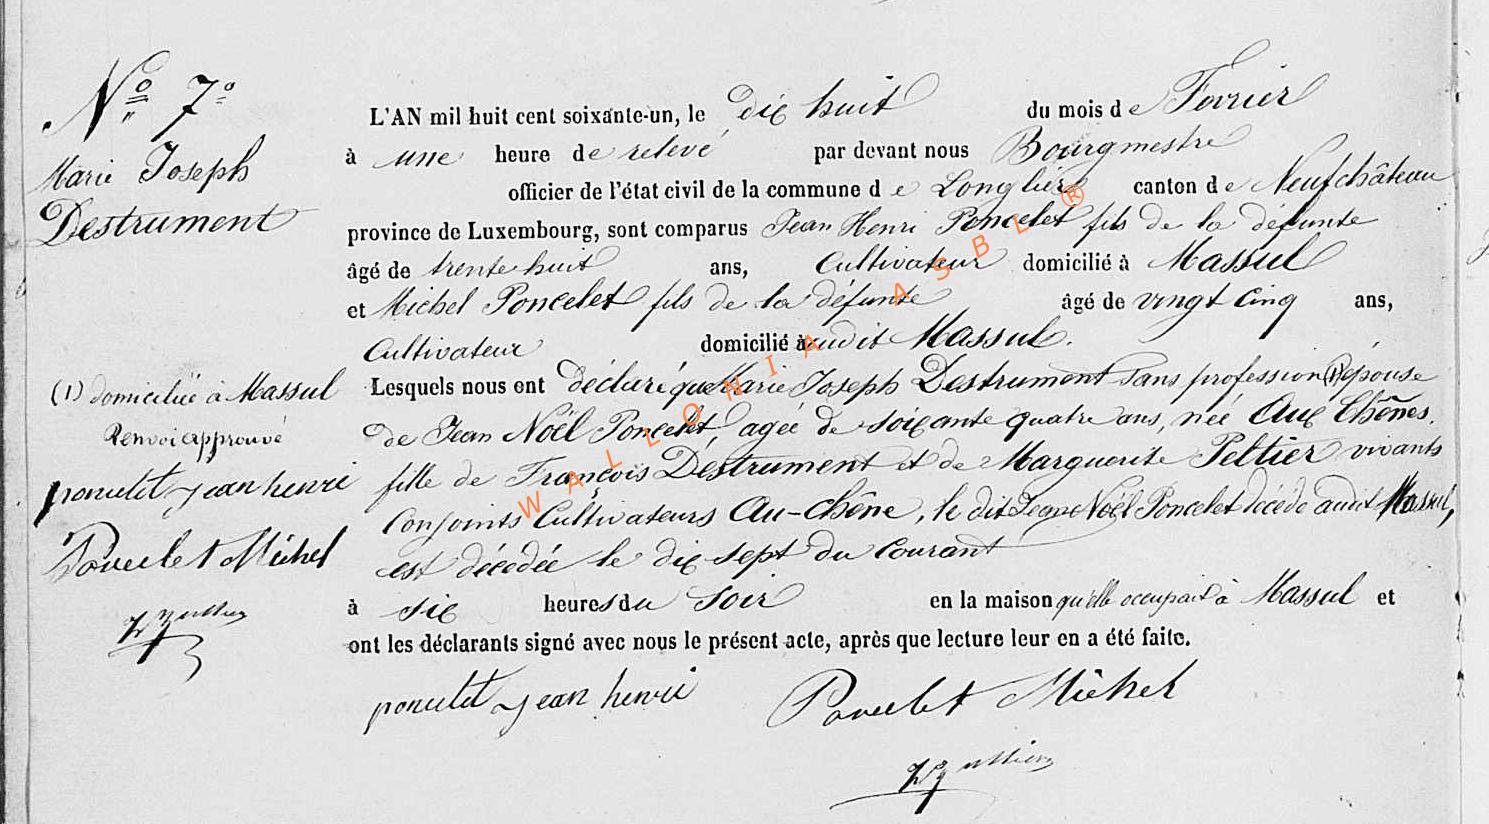 Nº 7º
Marie Joseph
Destrument
L'AN mil huit cent soixante-un, le dix huit du mois de Fevrier
à une heure de relevé par devant nous Bourgmestre
officier de l'état civil de la commune de Longlier canton de Neufchâteau
province de Luxembourg, sont comparus Jean Henri Poncelet fils de la défunte
âgé de trente huit ans, Cultivateur domicilié à Massul
et Michel Poncelet fils de la défunte âgé de vingt cinq ans,
Cultivateur domicilié audit Massul.
Lesquels nous ont déclaré que Marie Joseph Destrument sans profession (1) épouse
de Jean Noël Poncelet, agée de soixante quatre ans, née Aux Chênes.
fille de François Destrument et de Marguerite Peltier vivants
conjoints Cultivateurs Au-chêne, le dit Jean Noël Poncelet décédé audit Massul,
est décédée le dix sept du courant
à six heures du soir en la maison qu'elle occupait à Massul et
ont les déclarants signé avec nous le présent acte, après que lecture leur en a été faite.
poncelet jean henri
Poncelet Michel
(1) domiciliée à Massul
Renvoi approuvé
poncelet jean henri
Poncelet Michel
WALLONIA ASBL ®